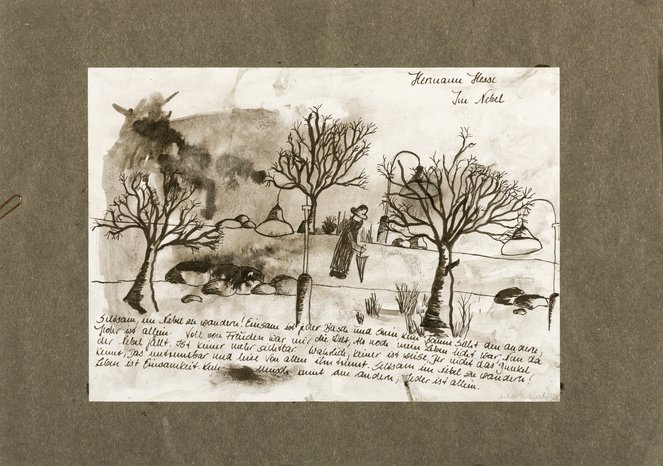 Hermann Hesse
Im Nebel
Seltsam, im Nebel zu wandern! Einsam ist jeder Busch und Stein, kein Baum sieht den andern,
Jeder ist allein. Voll von Freunden war mir die Welt, Als noch mein Leben licht war, Nun da
der Nebel fällt, Ist keiner mehr sichtbar. Wahrlich, keiner ist weise, Der nicht das Dunkel
kennt, Das unentrinnbar und leise Von allen ihn trennt. Seltsam im Nebel zu wandern!
Leben ist Einsamkeit Kein Mensch kennt den andern, Jeder ist allein.